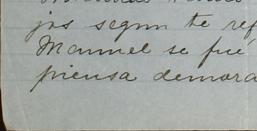 jos segun te ref
Manuel se fué
piensa demora